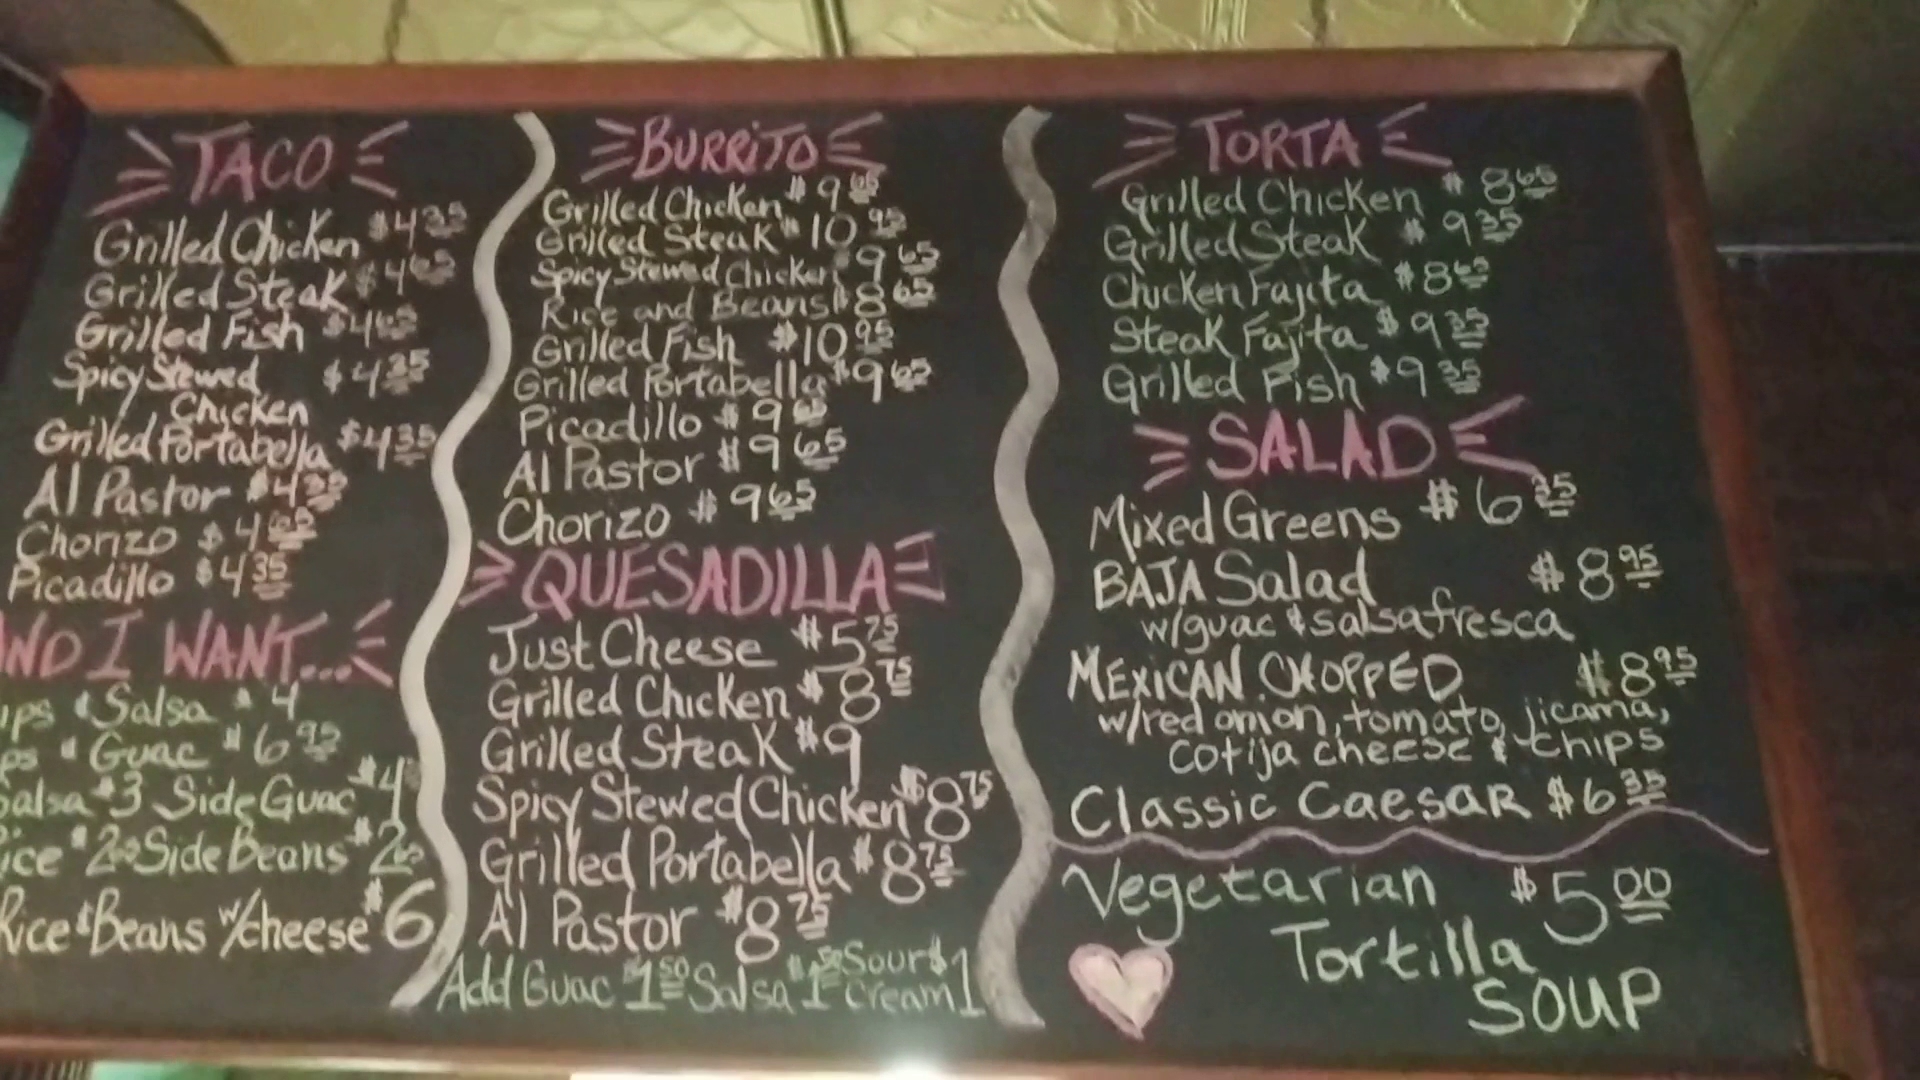 TACO
Grilled Chicken $4.35
Grilled Steak $4.65
Grilled Fish $4.65
Spicy Stewed $4.35
Chicken
Grilled Portabella $4.35
Al Pastor $4.35
Chorizo $4.65
Picadillo $4.35
AND I WANT...
ips & Salsa $4
ps & Guac $6.95
Salsa $3 Side Guac $4
ice $2.65 Side Beans $2.65
Rice & Beans w/cheese $6
BURRITO
Grilled Chicken $9.65
Grilled Steak $10.95
Spicy Stewed Chicken $9.65
Rice and Beans $8.65
Grilled Fish $10.95
Grilled Portabella $9.65
Picadillo $9.65
Al Pastor $9.65
Chorizo $9.65
QUESADILLA
Just Cheese $5.75
Grilled Chicken $8.75
Grilled Steak $9
Spicy Stewed Chicken $8.75
Grilled Portabella $8.75
Al Pastor $8.75
Add Guac $1.50 Salsa $1.50 Sour Cream $1
TORTA
Grilled Chicken $8.65
Grilled Steak $9.35
Chicken Fajita $8.65
Steak Fajita $9.35
Grilled Fish $9.35
SALAD
Mixed Greens $6.35
BAJA Salad $8.95
w/guac & salsa fresca
MEXICAN CHOPPED $8.95
w/red onion, tomato, jicama,
cotija cheese & chips
Classic Caesar $6.35
Vegetarian $5.00
Tortilla
SOUP